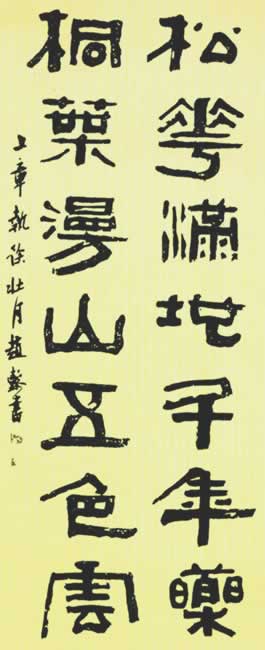 松華滿地千年
桐葉漫山五色雲
上章執徐壯月趙書